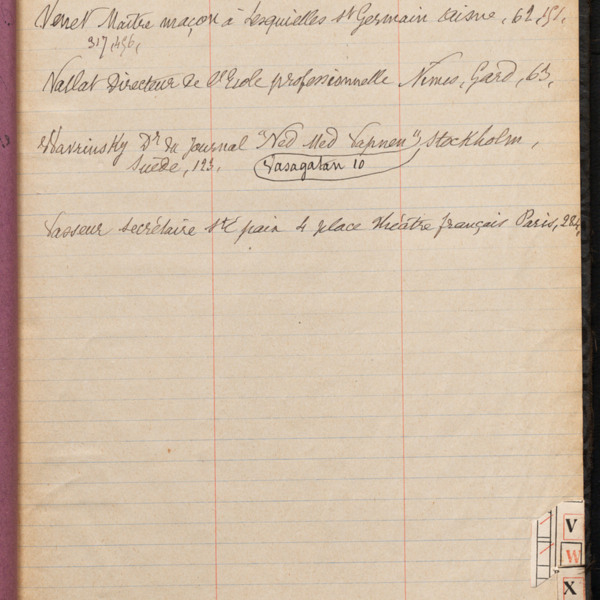 Venet Maître maçon à Lesquielles St Germain Aisne, 62, 151,
317, 456,
Vallat Directeur de l'Ecole professionnelle Nimes, Gard, 63,
Wavrinsky Dr du Journal "Ned Med Vapnen", Stockholm,
Suède, 123, Vasagatan 10
Vasseur secrétaire Sté paix 4 place théâtre français Paris, 284,
V
W
X